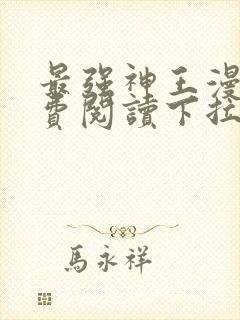 最強神王漫
費閱讀下拉
馬永祥